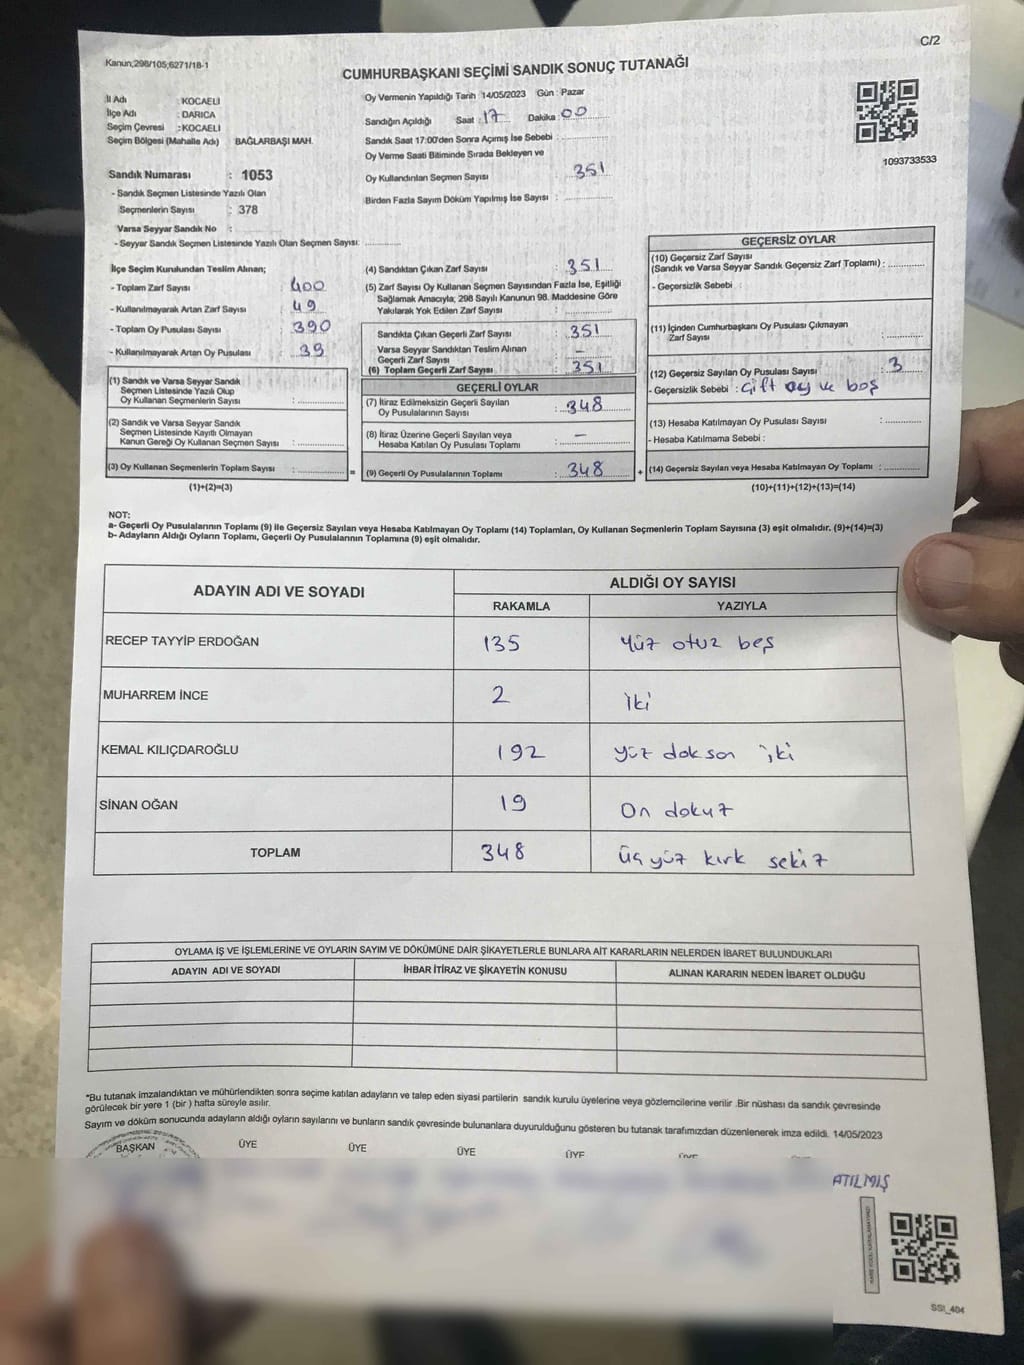 C/2
Kanun;298/105;6271/18-1
CUMHURBAŞKANI SEÇİMİ SANDIK SONUÇ TUTANAĞI
İl Adı : KOCAELİ
İlçe Adı : DARICA
Seçim Çevresi : KOCAELİ
Seçim Bölgesi (Mahalle Adı) BAĞLARBAŞI MAH.
Sandık Numarası : 1053
- Sandık Seçmen Listesinde Yazılı Olan
Seçmenlerin Sayısı : 378
Varsa Seyyar Sandık No :
- Seyyar Sandık Seçmen Listesinde Yazılı Olan Seçmen Sayısı: ............
Oy Vermenin Yapıldığı Tarih 14/05/2023 Gün : Pazar
Sandığın Açıldığı Saat : 17 Dakika : 00
Sandık Saat 17:00'den Sonra Açımış İse Sebebi : ............
Oy Verme Saati Bitiminde Sırada Bekleyen ve
Oy Kullandırılan Seçmen Sayısı : 351
Birden Fazla Sayım Döküm Yapılmış İse Sayısı : ............
1093733533
İlçe Seçim Kurulundan Teslim Alınan;
- Toplam Zarf Sayısı : 400
- Kullanılmayarak Artan Zarf Sayısı : 49
- Toplam Oy Pusulası Sayısı : 390
- Kullanılmayarak Artan Oy Pusulası : 39
(1) Sandık ve Varsa Seyyar Sandık
Seçmen Listesinde Yazılı Olup
Oy Kullanan Seçmenlerin Sayısı : ............
(2) Sandık ve Varsa Seyyar Sandık
Seçmen Listesinde Kayıtlı Olmayan
Kanun Gereği Oy Kullanan Seçmen Sayısı : ............
(3) Oy Kullanan Seçmenlerin Toplam Sayısı : ............
(1)+(2)=(3)
(4) Sandıktan Çıkan Zarf Sayısı : 351
(5) Zarf Sayısı Oy Kullanan Seçmen Sayısından Fazla İse, Eşitliği
Sağlamak Amacıyla; 298 Sayılı Kanunun 98. Maddesine Göre
Yakılarak Yok Edilen Zarf Sayısı : ............
Sandıkta Çıkan Geçerli Zarf Sayısı : 351
Varsa Seyyar Sandıktan Teslim Alınan
Geçerli Zarf Sayısı : -
(6) Toplam Geçerli Zarf Sayısı : 351
=
GEÇERLİ OYLAR
(7) İtiraz Edilmeksizin Geçerli Sayılan
Oy Pusulalarının Sayısı : 348
(8) İtiraz Üzerine Geçerli Sayılan veya
Hesaba Katılan Oy Pusulası Toplamı : -
(9) Geçerli Oy Pusulalarının Toplamı : 348
+
GEÇERSİZ OYLAR
(10) Geçersiz Zarf Sayısı
(Sandık ve Varsa Seyyar Sandık Geçersiz Zarf Toplamı) : ............
- Geçersizlik Sebebi :
(11) İçinden Cumhurbaşkanı Oy Pusulası Çıkmayan
Zarf Sayısı : ............
(12) Geçersiz Sayılan Oy Pusulası Sayısı : 3
- Geçersizlik Sebebi : Çift oy ve boş
(13) Hesaba Katılmayan Oy Pusulası Sayısı : ............
- Hesaba Katılmama Sebebi :
(14) Geçersiz Sayılan veya Hesaba Katılmayan Oy Toplamı : ............
(10)+(11)+(12)+(13)=(14)
NOT:
a- Geçerli Oy Pusulalarının Toplamı (9) ile Geçersiz Sayılan veya Hesaba Katılmayan Oy Toplamı (14) Toplamları, Oy Kullanan Seçmenlerin Toplam Sayısına (3) eşit olmalıdır. (9)+(14)=(3)
b- Adayların Aldığı Oyların Toplamı, Geçerli Oy Pusulalarının Toplamına (9) eşit olmalıdır.
ADAYIN ADI VE SOYADI
ALDIĞI OY SAYISI
RAKAMLA YAZIYLA
RECEP TAYYİP ERDOĞAN 135 Yüz otuz beş
MUHARREM İNCE 2 İki
KEMAL KILIÇDAROĞLU 192 Yüz doksan iki
SİNAN OĞAN 19 On dokuz
TOPLAM 348 Üç yüz kırk sekiz
OYLAMA İŞ VE İŞLEMLERİNE VE OYLARIN SAYIM VE DÖKÜMÜNE DAİR ŞİKAYETLERLE BUNLARA AİT KARARLARIN NELERDEN İBARET BULUNDUKLARI
ADAYIN ADI VE SOYADI İHBAR İTİRAZ VE ŞİKAYETİN KONUSU ALINAN KARARIN NEDEN İBARET OLDUĞU
*Bu tutanak imzalandıktan ve mühürlendikten sonra seçime katılan adayların ve talep eden siyasi partilerin sandık kurulu üyelerine veya gözlemcilerine verilir .Bir nüshası da sandık çevresinde
görülecek bir yere 1 (bir ) hafta süreyle asılır.
Sayım ve döküm sonucunda adayların aldığı oyların sayılarını ve bunların sandık çevresinde bulunanlara duyurulduğunu gösteren bu tutanak tarafımızdan düzenlenerek imza edildi. 14/05/2023
BAŞKAN ÜYE ÜYE ÜYE ÜYE
ATILMIŞ
SSI_404